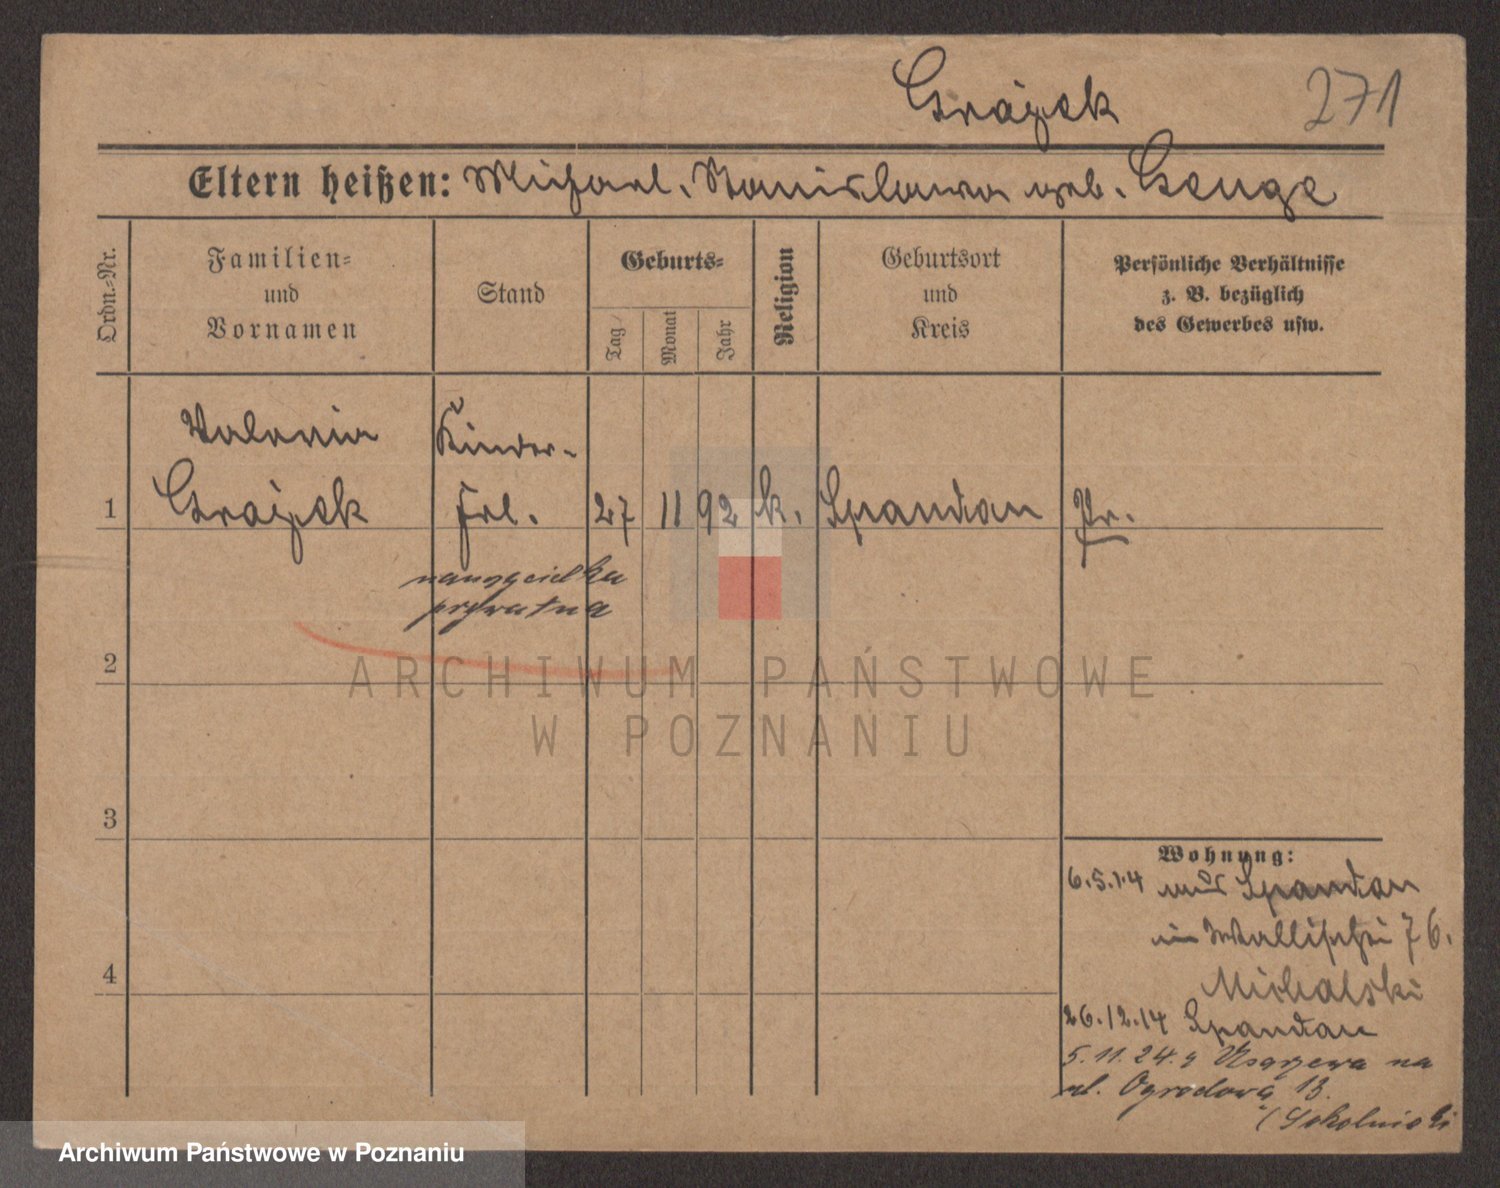 Grajek
271
Eltern heißen: Michael, Stanislawa geb. Genge
Ordn.-Nr.
Familien-
und
Vornamen
Stand
Geburts-
Tag
Monat
Jahr
Religion
Geburtsort
und
Kreis
Persönliche Verhältnisse
z. B. bezüglich
des Gewerbes usw.
Valeria
Kinder-
1 Grajek frl. 27 11 92 k. Spandau Pr.
nauczycielka
prywatna
2
ARCHIWUM PAŃSTWOWE
W POZNANIU
3
Wohnung:
6.5.14 aus Spandau
in Wallischei 76.
4
Michalski
26.12.14 Spandau
5.11.24. z na
ul. Ogrodową 13.
(Sokolnicki
Archiwum Państwowe w Poznaniu